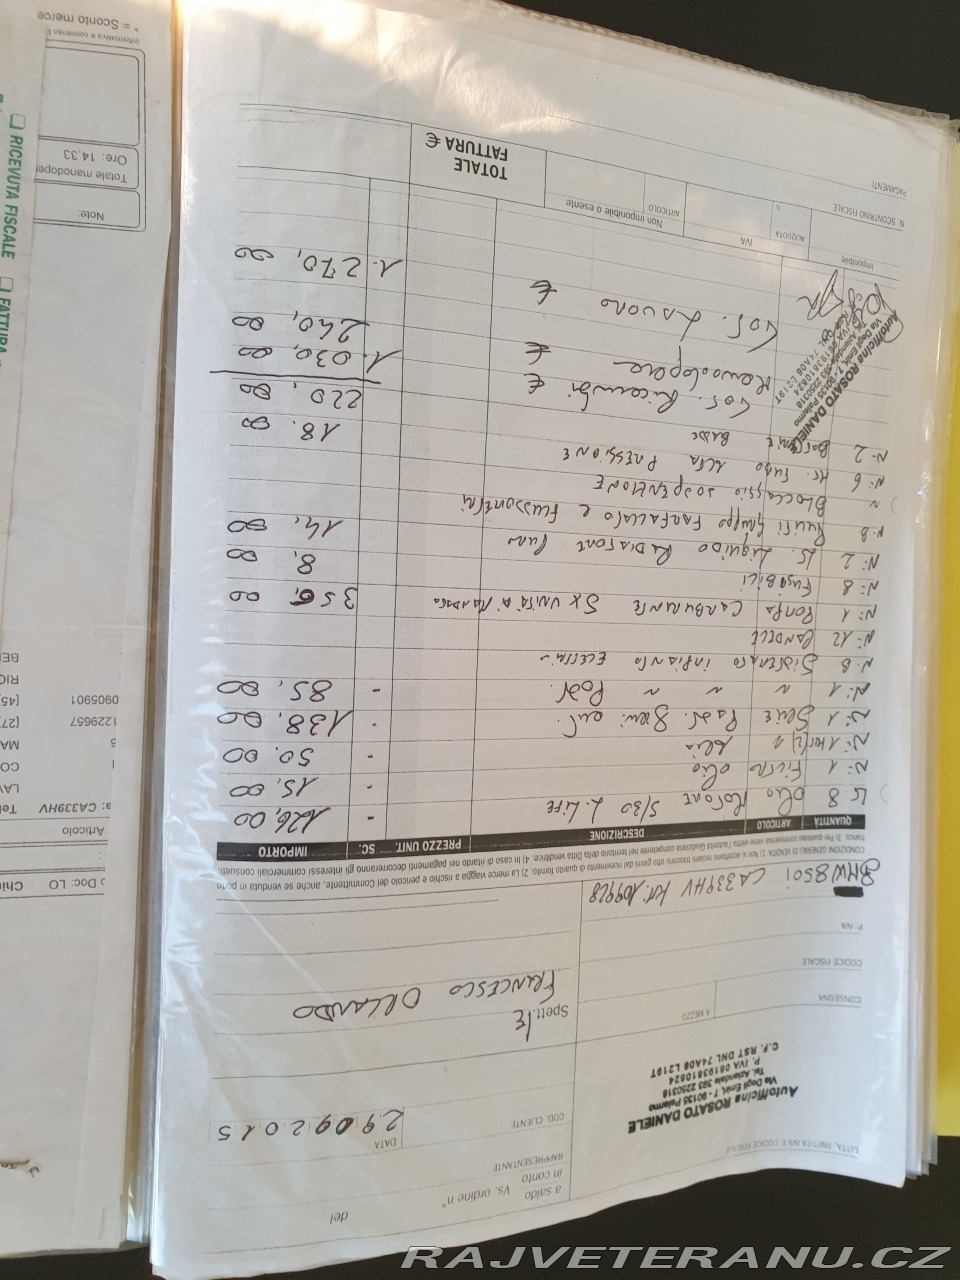 DITTA, PARTITA E IVA E CODICE FISCALE
Autofficina ROSATO DANIELE
Via Degli Emiri, 7 - 90135 Palermo
Tel. Aziendale 393 2250318
P. IVA 06193810824
C.F. RST DNL 74A06 L219T
a saldo Vs. ordine n° del
in conto
RAPPRESENTANTE
COD. CLIENTE
DATA
29092015
CONSEGNA
A MEZZO
Spett.le
FRANCESCO ORLANDO
CODICE FISCALE
P. IVA
BMW 850i CA339HV km: 109928
CONDIZIONI GENERALI DI VENDITA: 1) Non si accettano reclami trascorsi otto giorni dal ricevimento di quanto fornito. 2) La merce viaggia a rischio e pericolo del Committente, anche se venduta in porto
franco. 3) Per qualsiasi controversia viene eletta l'autorità Giudiziaria competente nel territorio della Ditta venditrice. 4) In caso di ritardo nei pagamenti decorreranno gli interessi commerciali consueti.
QUANTITÀ ARTICOLO DESCRIZIONE PREZZO UNIT. SC. IMPORTO
Lt. 8 Olio 5/30 L. LIFE - 126,00
N: 1 Filtro olio - 15,00
N: 1 - 50.00
N: 1 Serie - 138,00
N: 1 " " " Post. - 85,00
N.B SISTEMATO IMPIANTO ELETTR.
N: 12 CANDELE
N: 1 POMPA CARBURANTE SX 356,00
N: 8 FUSIBILI 8,00
N: 2 Lt. LIQUIDO RADIATORI Puro 14,00
N.B Puliti gruppo FARFALLATO e FLUSSOMETRI
" BLOCCAGGIO SOSPENSIONE
N: 6 Mt. Tubo ALTA PRESSIONE
N: 2 18.00
220,00
Cos. Ricambi € 1.030,00
Manodopera € 240,00
Cos. Lavoro € 1.270,00
Autofficina ROSATO DANIELE
Via Degli Emiri, 7 - 90135 Palermo
Tel. Aziendale 393 2250318
P. IVA 06193810824
Imponibile
ALIQUOTA
%
IVA
Non imponibile o esente
ARTICOLO
TOTALE
FATTURA €
N. SCONTRINO FISCALE
PAGAMENTI
* = Sconto merce
Informativa e consenso
Ore: 14,33
Totale manodopera
Note:
RICEVUTA FISCALE
FATTURA
0905901
1229657
a: CA339HV Tel
Articolo
Doc: LO: Chi
RAJVETERANU.CZ